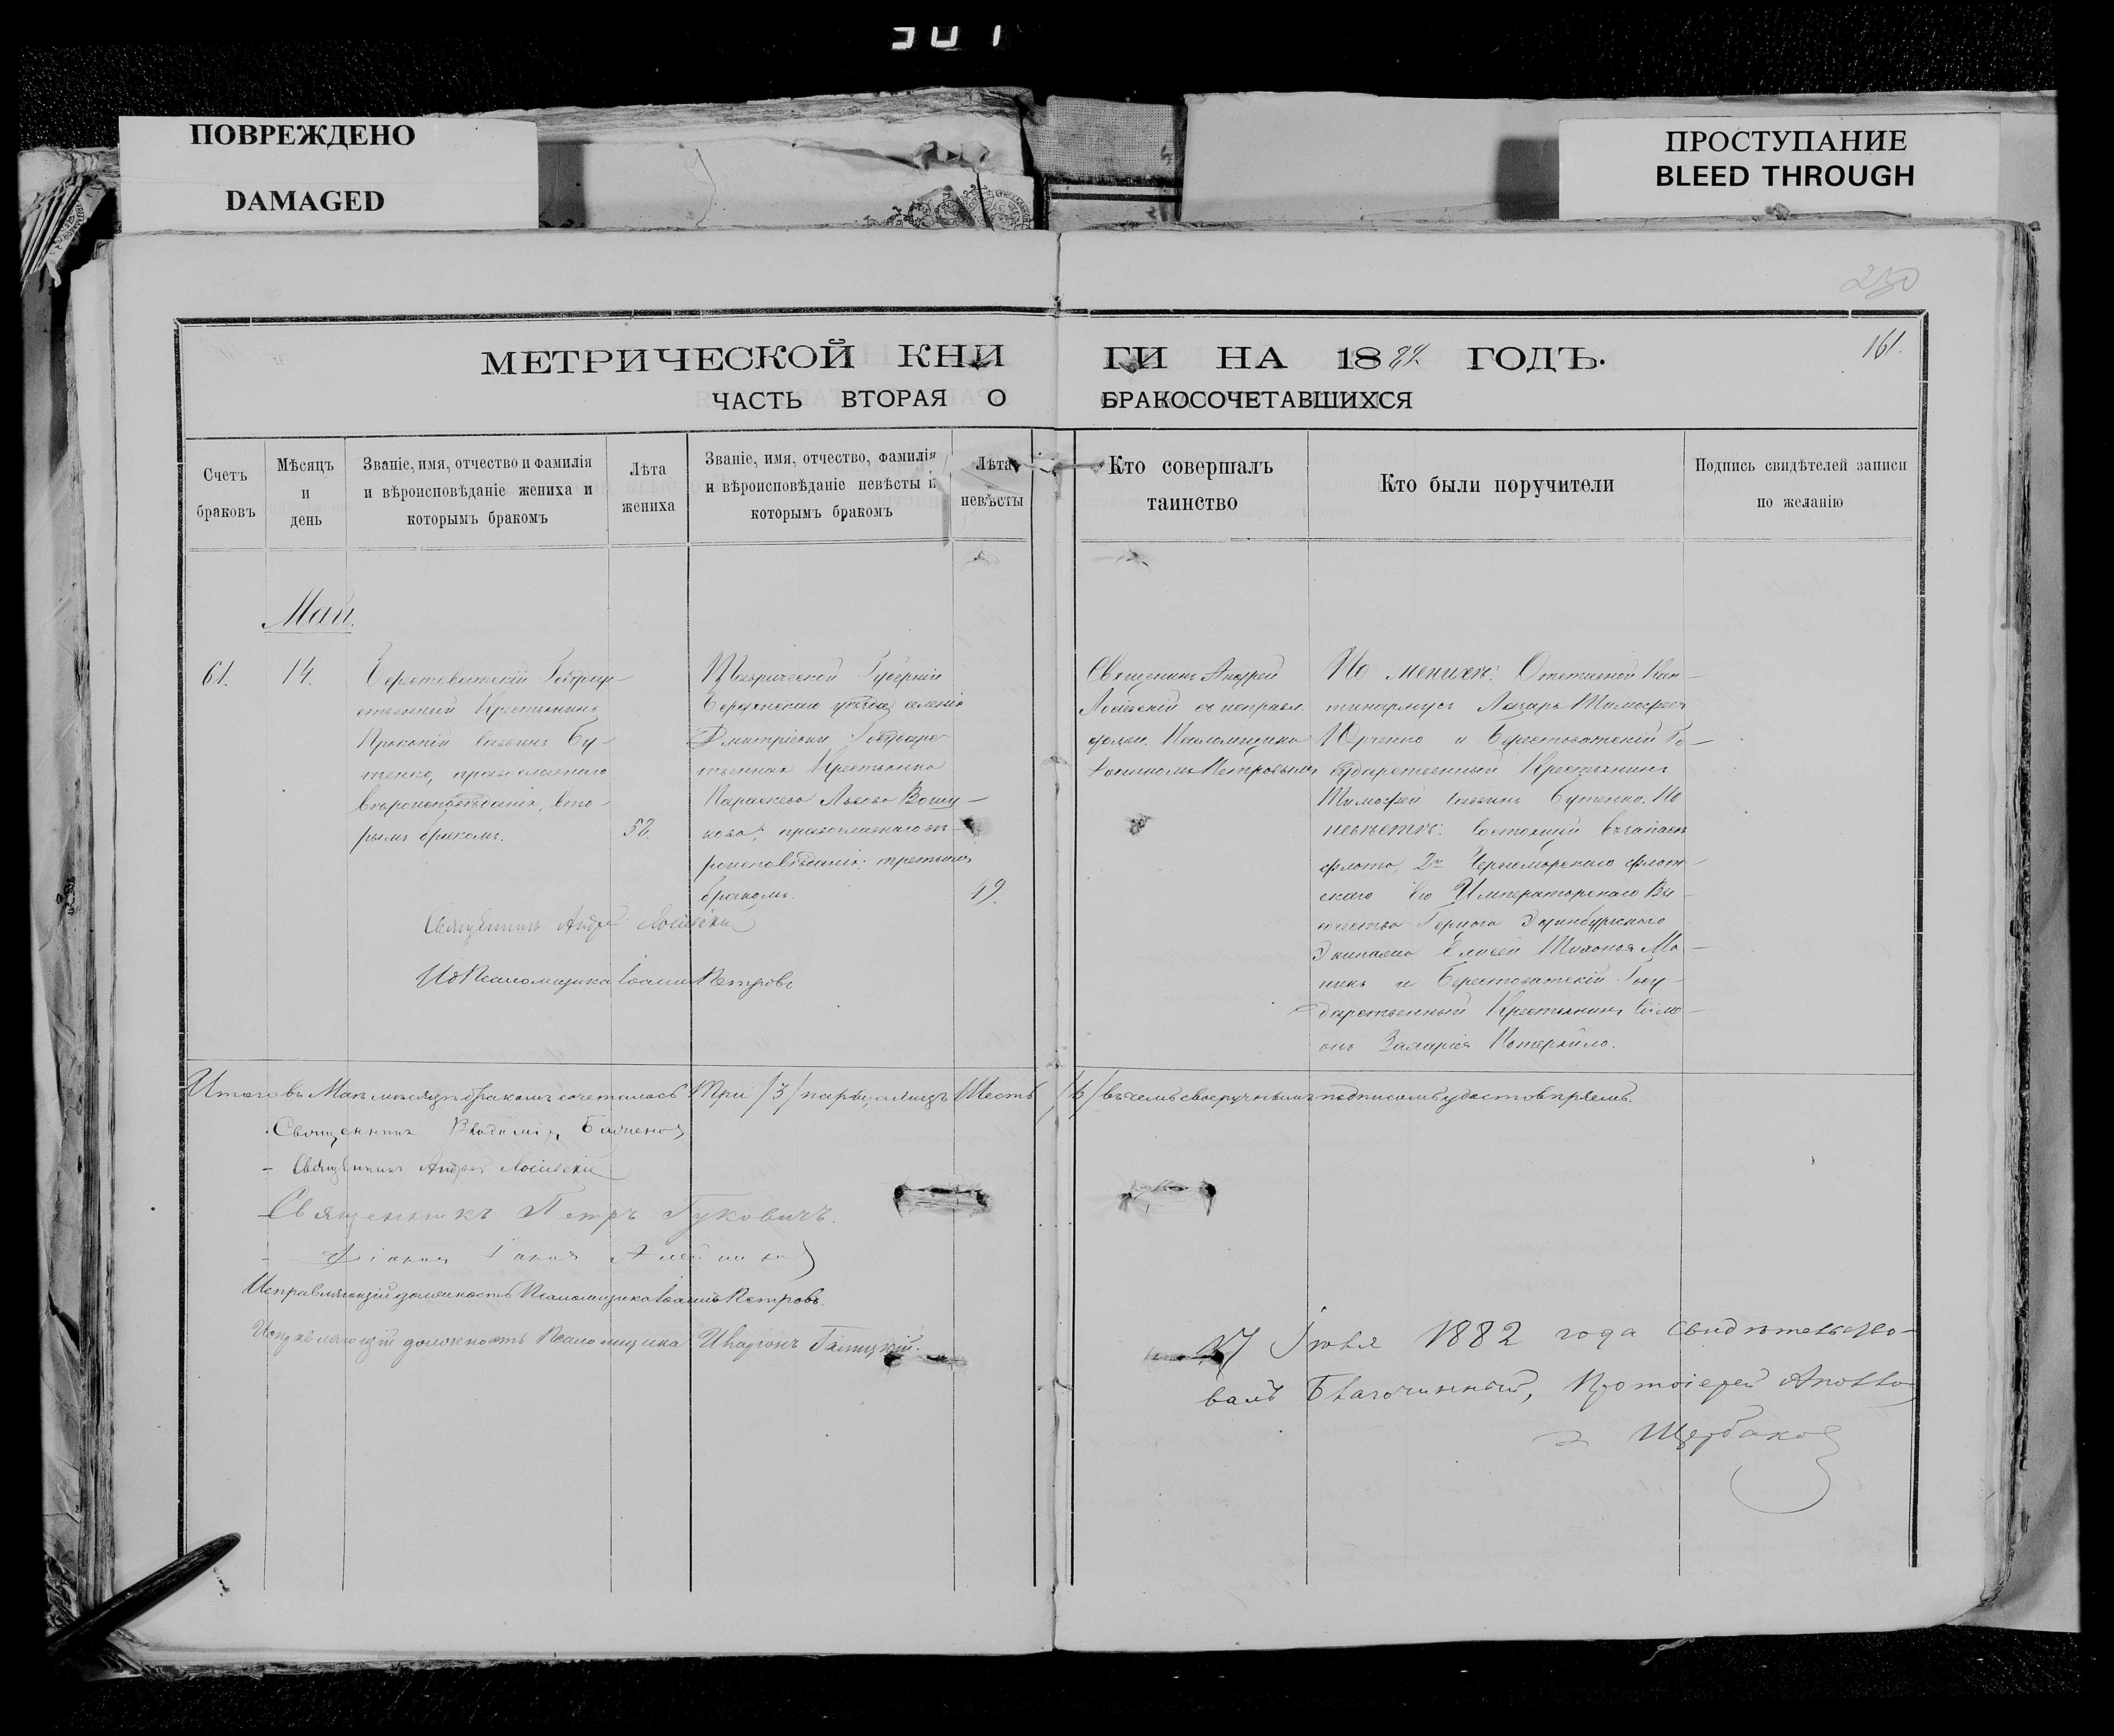 ПОВРЕЖДЕНО
DAMAGED
ПРОСТУПАНИЕ
BLEED THROUGH
250
161.
МЕТРИЧЕСКОЙ КНИГИ НА 1882 ГОДЪ.
ЧАСТЬ ВТОРАЯ О БРАКОСОЧЕТАВШИХСЯ
Счетъ
браковъ
Мѣсяцъ
и
день
Званіе, имя, отчество и фамилія
и вѣроисповѣданіе жениха и
которымъ бракомъ
Лѣта
жениха
Званіе, имя, отчество, фамилія
и вѣроисповѣданіе невѣсты и
которымъ бракомъ
Лѣта
невѣсты
Кто совершалъ
таинство
Кто были поручители
Подпись свидѣтелей записи
по желанію
Май.
61.
14.
Берестоватскій Государ-
ственный Крестьянинъ
Прокопій Саввинъ Бу-
тенко, православнаго
вѣроисповѣданія, вто-
рымъ бракомъ.
52.
Таврической Губерніи
Бердянскаго уѣзда селенія
Дмитріевки Государс-
твенная Крестьянка
Параскева Львова
православнаго вѣ-
роисповѣданія, третьимъ
бракомъ.
49.
Священникъ Андрей
съ исправл.
должн. Псаломщика
Іоанномъ Петровымъ
По женихѣ: Отставной Кан-
тинармусъ Лазарь Тимофеевъ
Юрченко и Берестоватскій Го-
сударственный Крестьянинъ
Тимофей Саввинъ Бутенко. По
невѣстѣ: Состоящій въ запасѣ
флота, 2го Черноморскаго флот-
скаго Его Императорскаго Вы-
сочества Герцога Эдинбургскаго
Экипажа Елисей Тихоновъ Ма-
нинъ и Берестоватскій Госу-
дарственный Крестьянинъ Симе-
онъ Захаріевъ
Священникъ Андрей
ИдПсаломщика Іоаннъ Петровъ
Итого въ Маѣ мѣсяцѣ бракомъ сочеталось Три /3/ пары, а лицъ Шесть /6/ въ чемъ своеручнымъ подписомъ удостовѣряемъ.
Священникъ Владиміръ
Священникъ Андрей
Священникъ Петръ Гуковичъ.
Діаконъ
Исправляющій должность Псаломщика Іоаннъ Петровъ.
Исправляющій должность Псаломщика Иларіонъ Галицкій.
Іюля 1882 года свидѣтельство-
валъ Благочинный, Протоіерей Аполло
Щербаковъ